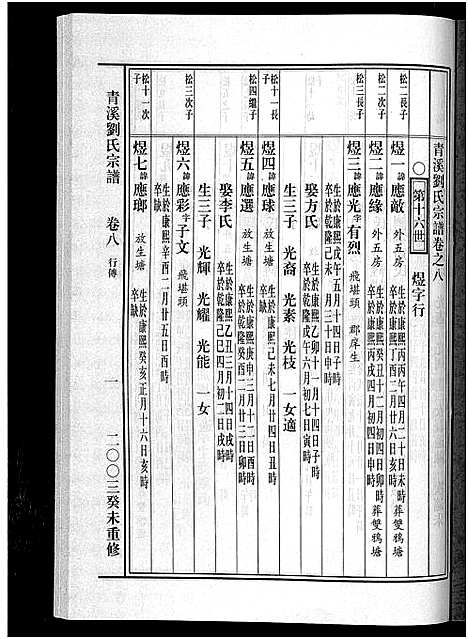 青溪劉氏宗譜卷之八
○ 第十六世 煜字行
松二長子
煜一 諱 應敵 外五房 生於康熙丙午四月二十日未時
卒於康熙丁酉三月廿六日寅時 葬雙鴉塘
松二次子
煜二 諱 應緣 外五房 生於康熙
卒於康熙丙戌四月初四日申時 葬雙鴉塘
松三長子
煜三 諱 應光 字 有烈 飛堪頭 郡庠生
生於康熙戊午五月十四日子時
卒於乾隆己未十月三十日卯時
娶方氏 生於康熙乙卯十一月十四日子時
卒於乾隆戊午六月初七日寅時
生三子 光裔 光素 光枝 一女適
松十一長子
煜四 諱 應球 放生塘 生於康熙己未七月廿四日丑時
卒缺
松四繼子
煜五 諱 應選 放生塘 生於康熙庚申三月十二日酉時
卒於乾隆癸酉二月廿三日卯時
娶李氏 生於康熙乙丑三月十四日戌時
卒於乾隆己巳四月初二日戌時
生三子 光輝 光耀 光能 一女
松三次子
煜六 諱 應彩 字 子文 飛堪頭
生於康熙辛酉十二月廿五日酉時
卒缺
松十一次子
煜七 諱 應瑯 放生塘 生於康熙癸亥正月十六日亥時
卒缺
青溪劉氏宗譜 卷八 行傳 一 二〇〇三癸未重修